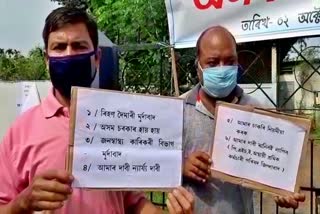 তাৰিখ- ০২ অক্টো
১/ বিহাগ দৈমাৰী মুৰ্দাবাদ
২/ অসম চৰকাৰ হায় হায়
৩/ জনস্বাস্থ্য কাৰিকৰী বিভাগ
- মুৰ্দাবাদ
৪/ আমাৰ দাবী ন্যায্য দাবী
৫/ আমাৰ চাকৰি নিয়মীয়া
কৰক
৬/ আমাৰ দাবী মানিবই লাগিব